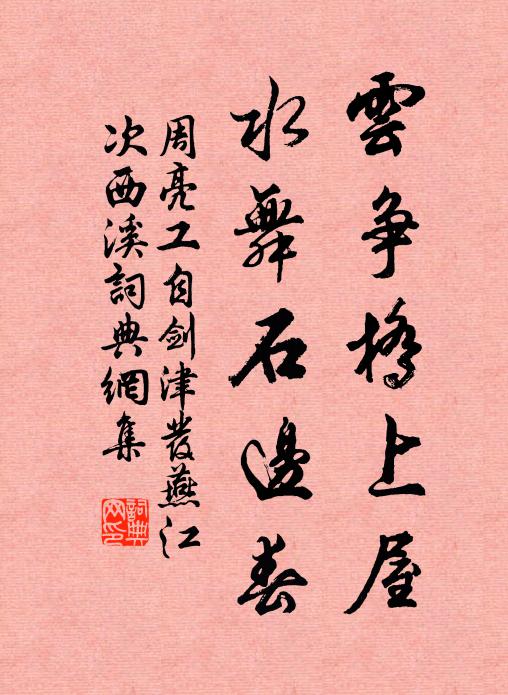 雲争橋上屋
水舞石邊春
周亮工自剑津發燕江
次西溪詞典網集
詞典网印